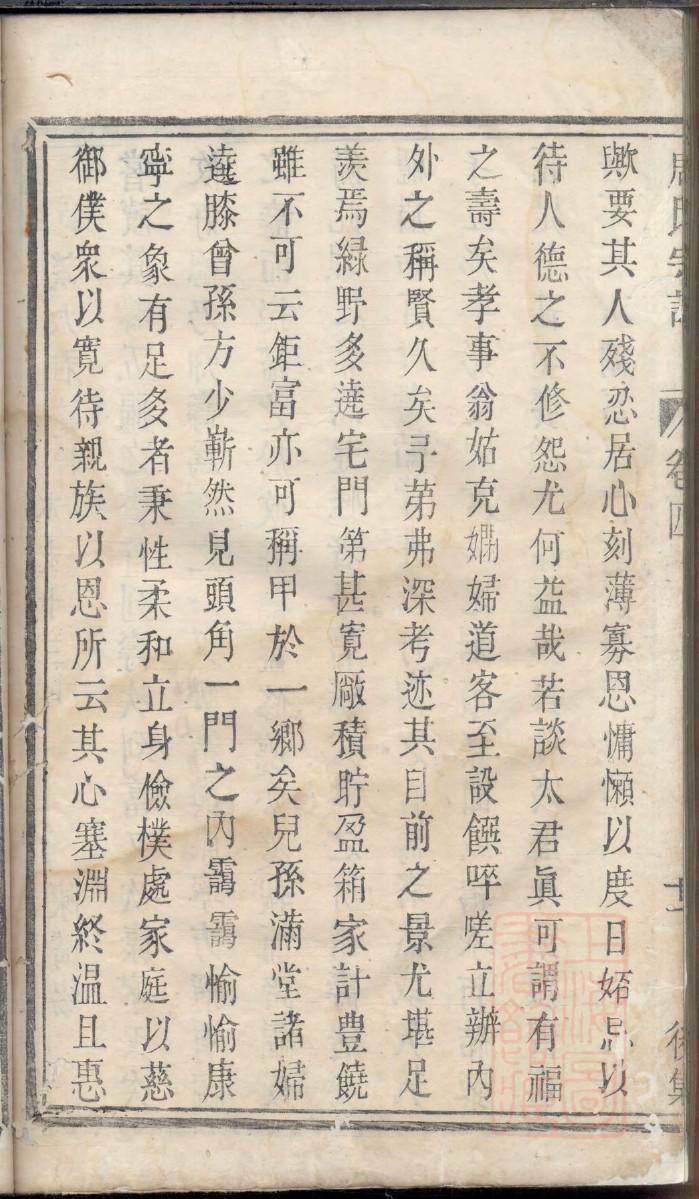 周氏宗譜 卷四 十一 後集
歟要其人殘忍居心刻薄寡恩慵懶以度日妬忌以
待人德之不修怨尤何益哉若談太君眞可謂有福
之壽矣孝事翁姑克嫻婦道客至設饌啐嗟立辦內
外之稱賢久矣子弟弗深考迹其目前之景尤堪足
羨焉緑野多遶宅門第甚寛厰積貯盈箱家計豊饒
雖不可云鉅富亦可稱甲於一鄉矣兒孫滿堂諸婦
遶膝曾孫方少嶄然見頭角一門之內靄靄愉愉康
寧之象有足多者秉性柔和立身儉樸處家庭以慈
御僕衆以寛待親族以恩所云其心塞淵終温且惠